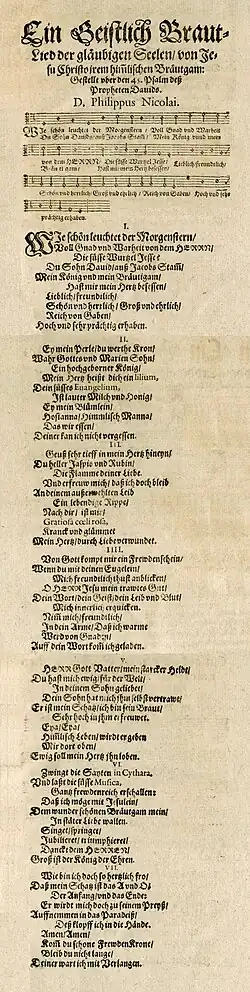 Ein Geistlich Braut-
Lied der gläubigen Seelen/ von Je-
su Christo jrem him̃lischen Bräutgam:
Gestellt vber den 45. Psalm deß
Propheten Dauids.
D. Philippus Nicolai.
WIe schön leuchtet der Morgenstern/ Voll Gnad vnd Warheit
Du Sohn Dauids/ auß Jacobs Stam̃/ Mein König vnnd mein
von dem HERRN/ Die süsse Wurtzel Jesse/ Lieblich/freundlich/
Bräutigam/ Hast mir mein Hertz besessen/
Schön vnd herrlich/ Groß vnd ehrlich/ Reich von Gaben/ Hoch vnd sehr
prächtig erhaben.
I.
WIe schön leuchtet der Morgenstern/
Voll Gnad vnd Warheit von dem HERRN/
Die süsse Wurtzel Jesse?
Du Sohn Dauid/ auß Jacobs Stam̃/
Mein König vnd mein Bräutigam/
Hast mir mein Hertz besessen/
Lieblich/ freundlich/
Schön vnd herrlich/ Groß vnd ehrlich/
Reich von Gaben/
Hoch vnd sehr prächtig erhaben.
II.
Ey mein Perle/ du werthe Kron/
Wahr Gottes vnd Marien Sohn/
Ein hochgeborner König/
Mein Hertz heißt dich ein lilium,
Dein süsses Euangelium,
Ist lauter Milch vnd Honig/
Ey mein Blümlein/
Hosianna/ Himmlisch Manna/
Das wir essen/
Deiner kan ich nicht vergessen.
III.
Geuß sehr tieff in mein Hertz hineyn/
Du heller Jaspis vnd Rubin/
Die Flamme deiner Liebe.
Vnd erfreuw mich/ daß ich doch bleib
An deinem außerwehlten Leib
Ein lebendige Rippe/
Nach dir/ ist mir/
Gratiosa cœli rosa,
Kranck vnd glümmet
Mein Hertz/ durch Liebe verwundet.
IIII.
Von Gott kompt mir ein Frewdenschein/
Wenn du mit deinen Eugelein/
Mich freundlich thust anblicken/
O HERR Jesu mein trawtes Gut/
Dein Wort/ dein Geist/ dein Leib vnd Blut/
Mich innerlich erquicken.
Nim̃ mich/ freundlich/
In dein Arme/ Daß ich warme
Werd von Gnaden/
Auff dein Wort kom̃ ich geladen.
V.
HERR Gott Vatter/ mein starcker Heldt/
Du hast mich ewig/ für der Welt/
In deinem Sohn geliebet/
Dein Sohn hat mich jhm selbs vertrawt/
Er ist mein Schatz/ ich bin sein Braut/
Sehr hoch in jhm erfreuwet.
Eya/ Eya/
Him̃lisch Leben/ wird er geben
Mir dort oben/
Ewig soll mein Hertz jhn loben.
VI.
Zwingt die Sayten in Cythara,
Vnd laßt die süsse Musica,
Gantz frewdenreich erschallen:
Daß ich möge mit Jesulein/
Dem wunder schönen Bräutgam mein/
In stäter Liebe wallen.
Singet/ springet/
Jubilieret/ triumphieret/
Danckt dem HERREN/
Groß ist der König der Ehren.
VII.
Wie bin ich doch so hertzlich fro/
Daß mein Schatz ist das A vnd O/
Der Anfang/ vnd das Ende:
Er wirdt mich doch zu seinem Preyß/
Auffnemmen in das Paradeiß/
Deß klopff ich in die Hände.
Amen/ Amen/
Kom̃ du schöne Frewden Krone/
Bleib du nicht lange/
Deiner wart ich mit Verlangen.